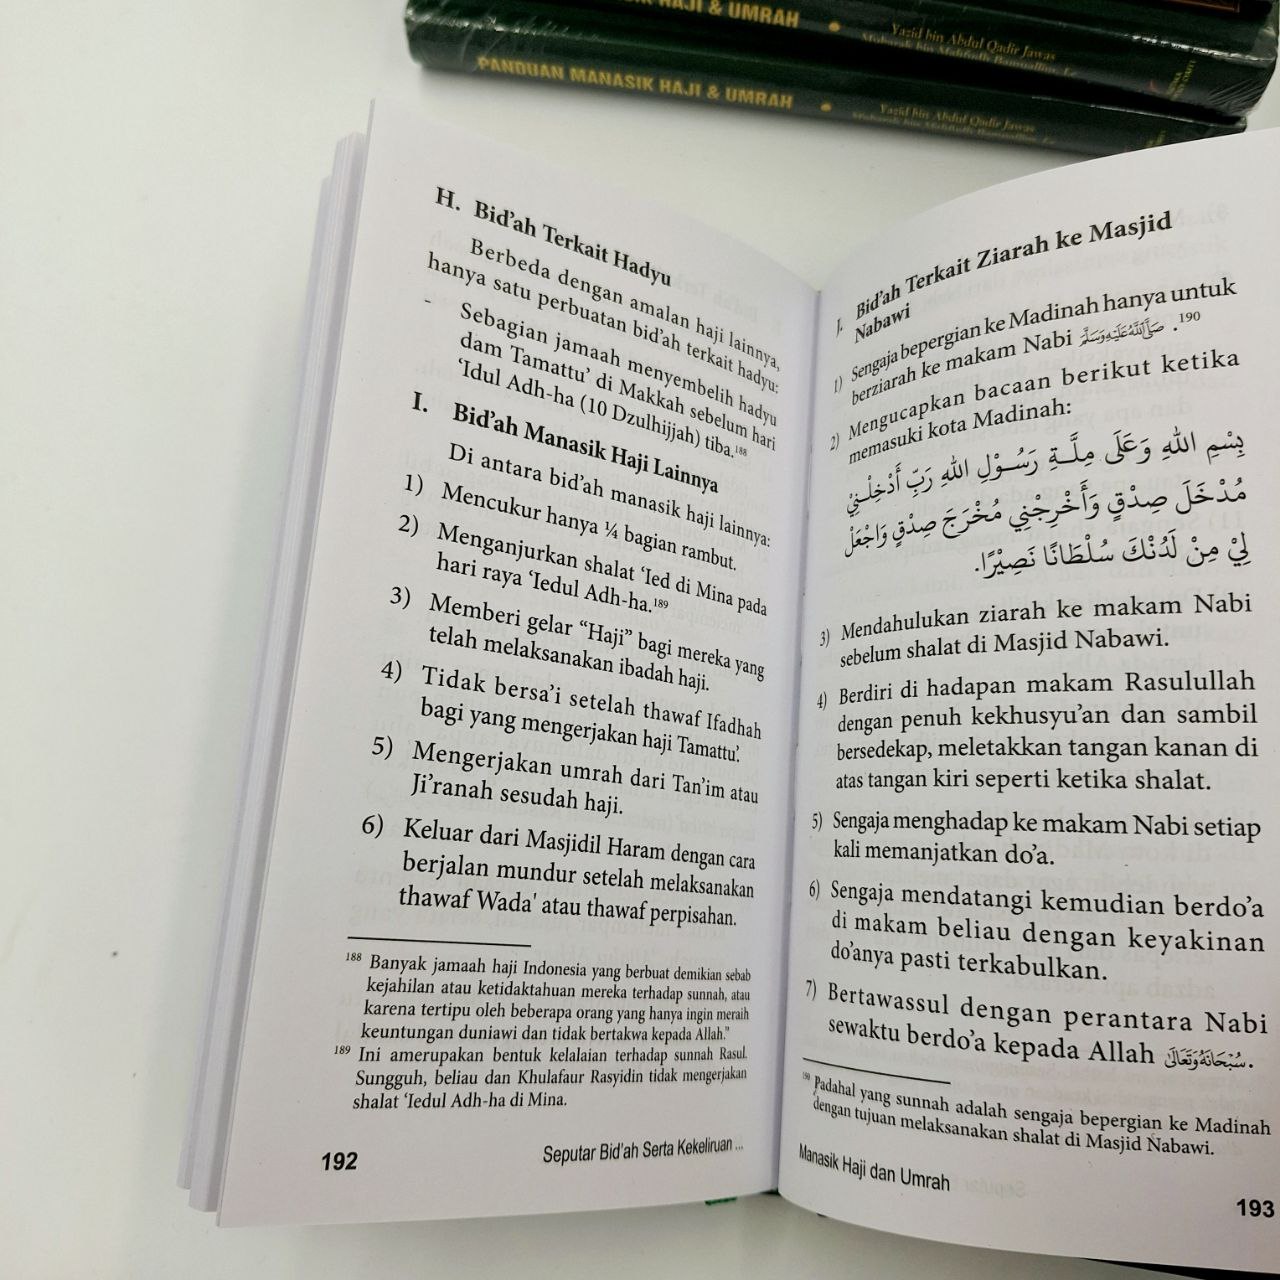 HAJI & UMRAH
Yazid bin Abdul Qadir Jawas
PANDUAN MANASIK HAJI & UMRAH
Yazid bin Abdul Qadir Jawas
H. Bid'ah Terkait Hadyu
Berbeda dengan amalan haji lainnya,
hanya satu perbuatan bid'ah terkait hadyu:
- Sebagian jamaah menyembelih hadyu
dam Tamattu' di Makkah sebelum hari
'Idul Adh-ha (10 Dzulhijjah) tiba.188
I. Bid'ah Manasik Haji Lainnya
Di antara bid'ah manasik haji lainnya:
1) Mencukur hanya ¼ bagian rambut.
2) Menganjurkan shalat 'Ied di Mina pada
hari raya 'Iedul Adh-ha.189
3) Memberi gelar "Haji" bagi mereka yang
telah melaksanakan ibadah haji.
4) Tidak bersa'i setelah thawaf Ifadhah
bagi yang mengerjakan haji Tamattu'.
5) Mengerjakan umrah dari Tan'im atau
Ji'ranah sesudah haji.
6) Keluar dari Masjidil Haram dengan cara
berjalan mundur setelah melaksanakan
thawaf Wada' atau thawaf perpisahan.
188 Banyak jamaah haji Indonesia yang berbuat demikian sebab
kejahilan atau ketidaktahuan mereka terhadap sunnah, atau
karena tertipu oleh beberapa orang yang hanya ingin meraih
keuntungan duniawi dan tidak bertakwa kepada Allah."
189 Ini amerupakan bentuk kelalaian terhadap sunnah Rasul.
Sungguh, beliau dan Khulafaur Rasyidin tidak mengerjakan
shalat 'Iedul Adh-ha di Mina.
192
Seputar Bid'ah Serta Kekeliruan ...
J. Bid'ah Terkait Ziarah ke Masjid
Nabawi
1) Sengaja bepergian ke Madinah hanya untuk
berziarah ke makam Nabi ﷺ.190
2) Mengucapkan bacaan berikut ketika
memasuki kota Madinah:
بِسْمِ اللهِ وَعَلَى مِلَّةِ رَسُوْلِ اللهِ رَبِّ أَدْخِلْنِيْ
مُدْخَلَ صِدْقٍ وَأَخْرِجْنِي مُخْرَجَ صِدْقٍ وَاجْعَلْ
لِيْ مِنْ لَدُنْكَ سُلْطَانًا نَصِيْرًا.
3) Mendahulukan ziarah ke makam Nabi
sebelum shalat di Masjid Nabawi.
4) Berdiri di hadapan makam Rasulullah
dengan penuh kekhusyu'an dan sambil
bersedekap, meletakkan tangan kanan di
atas tangan kiri seperti ketika shalat.
5) Sengaja menghadap ke makam Nabi setiap
kali memanjatkan do'a.
6) Sengaja mendatangi kemudian berdo'a
di makam beliau dengan keyakinan
do'anya pasti terkabulkan.
7) Bertawassul dengan perantara Nabi
sewaktu berdo'a kepada Allah سُبْحَانَهُ وَتَعَالَى.
190 Padahal yang sunnah adalah sengaja bepergian ke Madinah
dengan tujuan melaksanakan shalat di Masjid Nabawi.
Manasik Haji dan Umrah
193